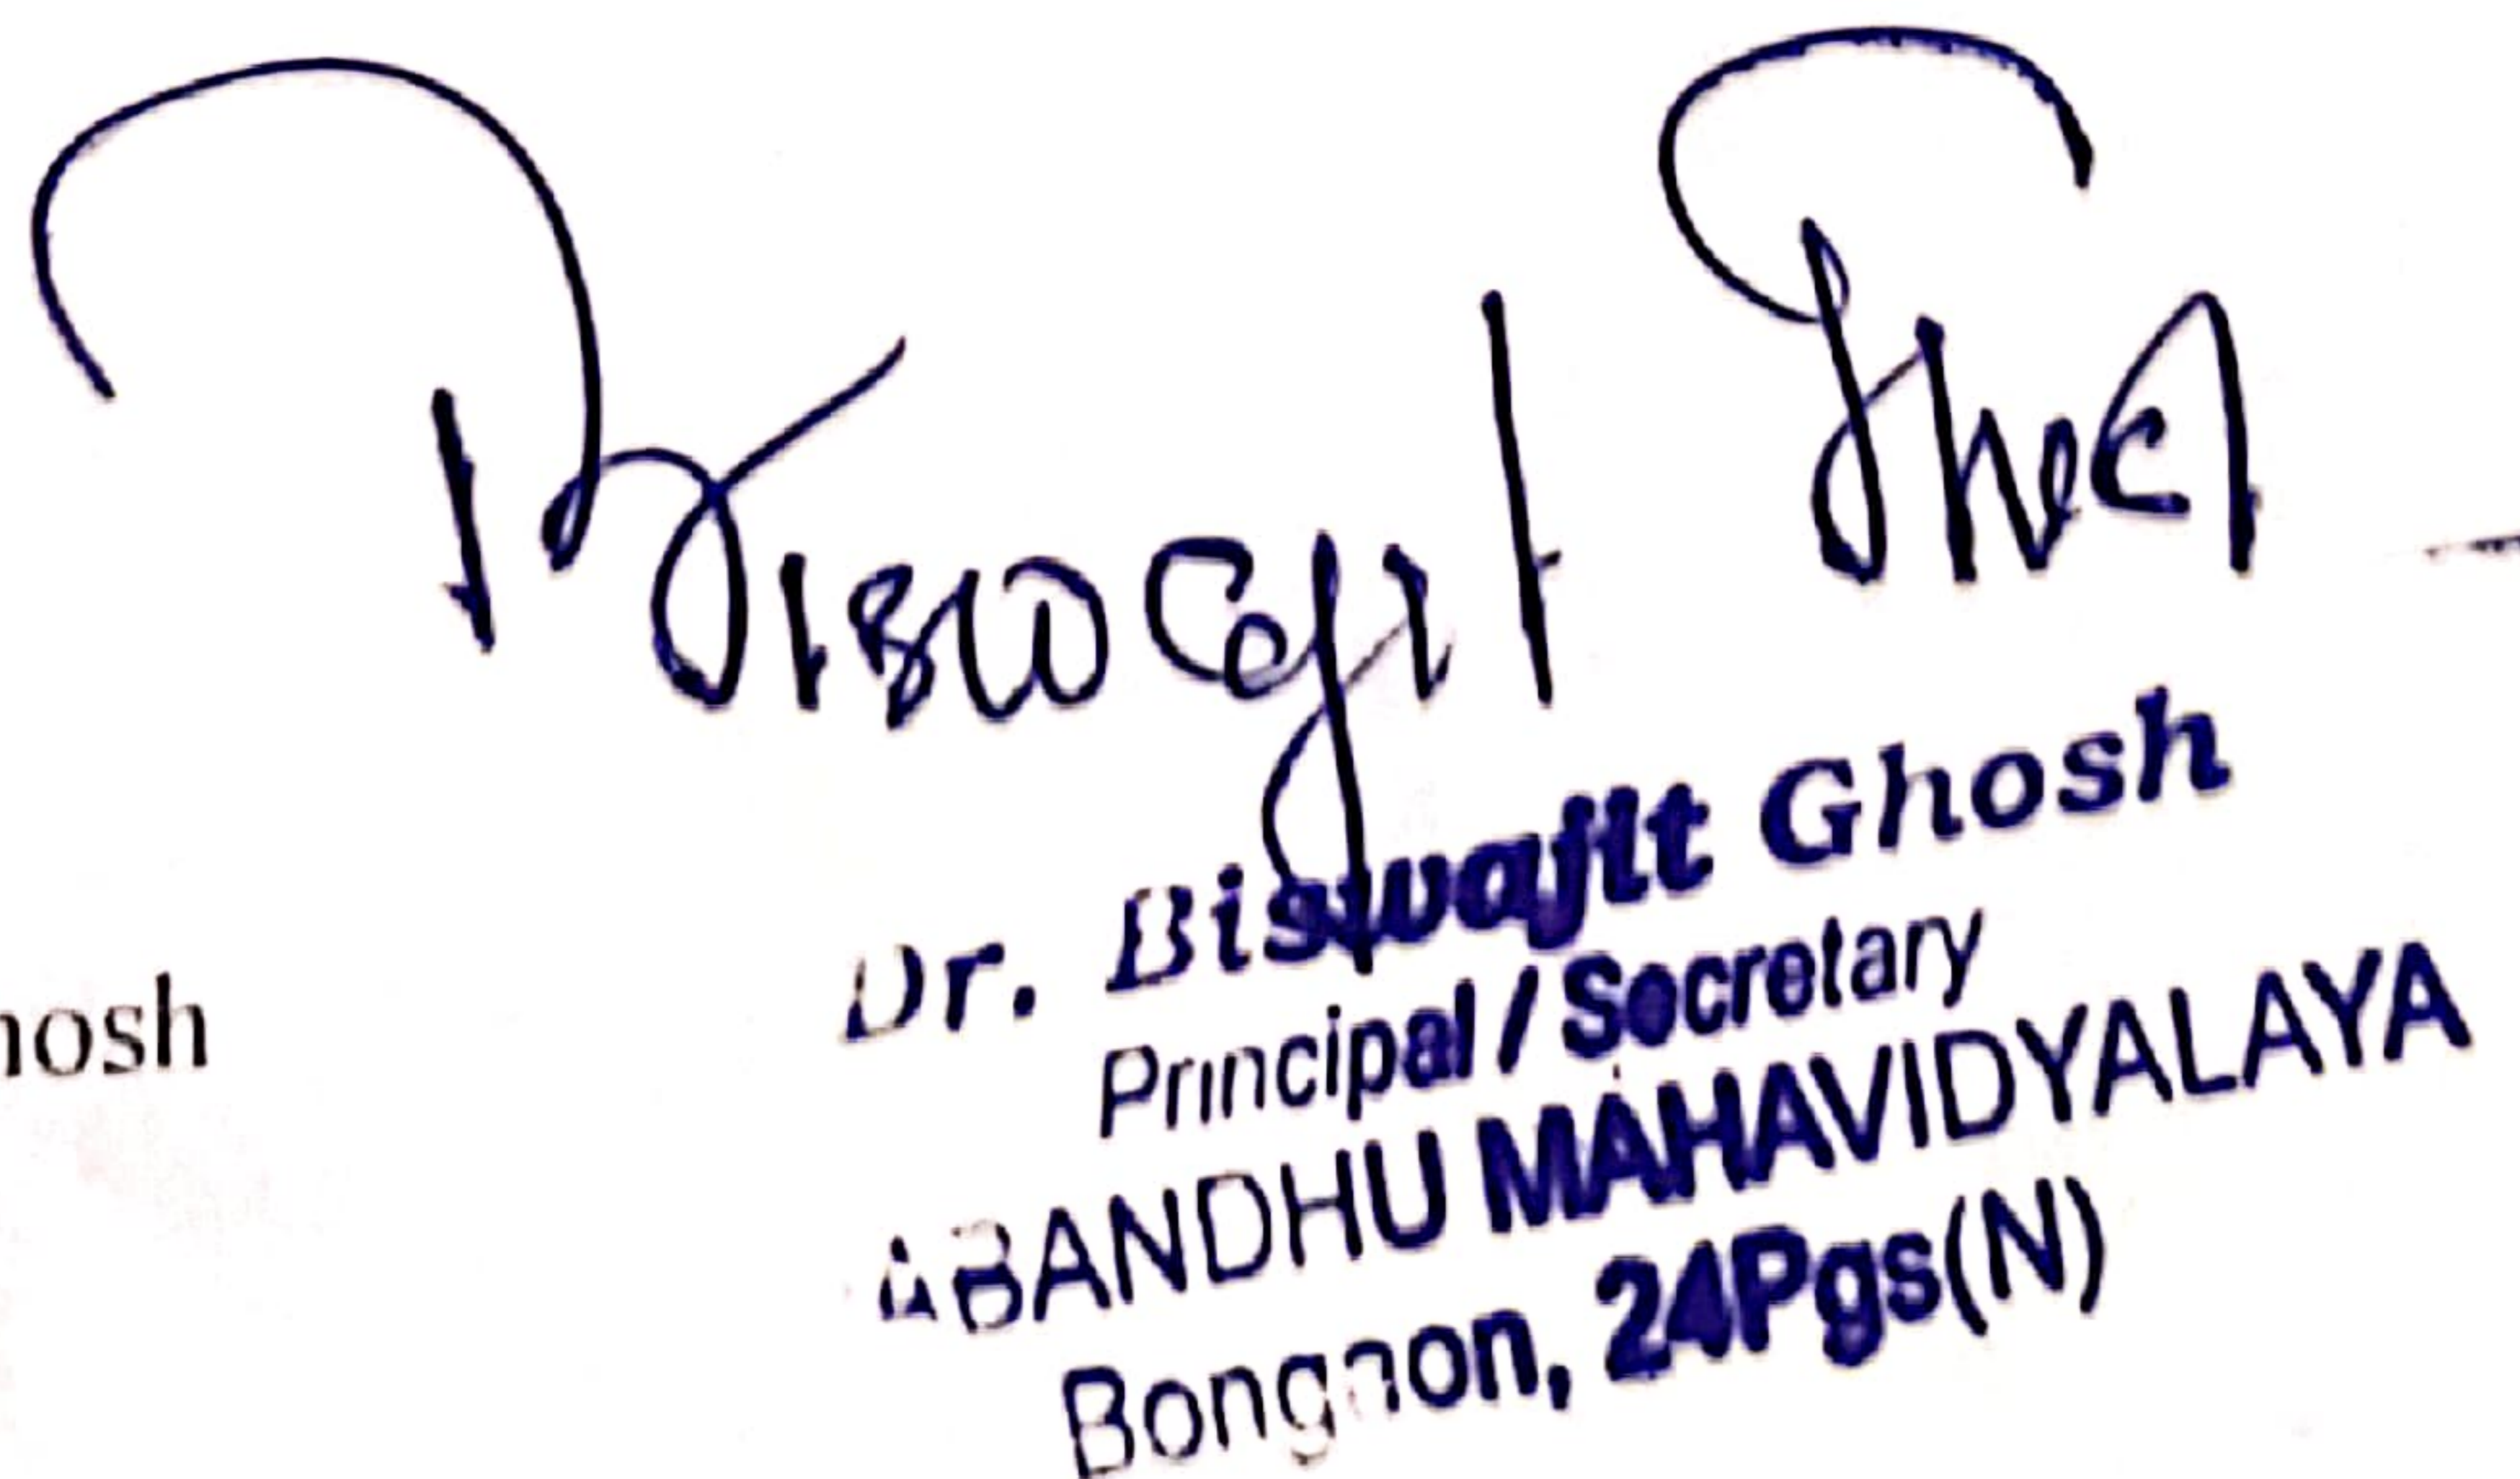 Biswajit Ghosh
Dr. Biswajit Ghosh
hosh
Principal / Secretary
ABANDHU MAHAVIDYALAYA
Bongaon, 24Pgs(N)